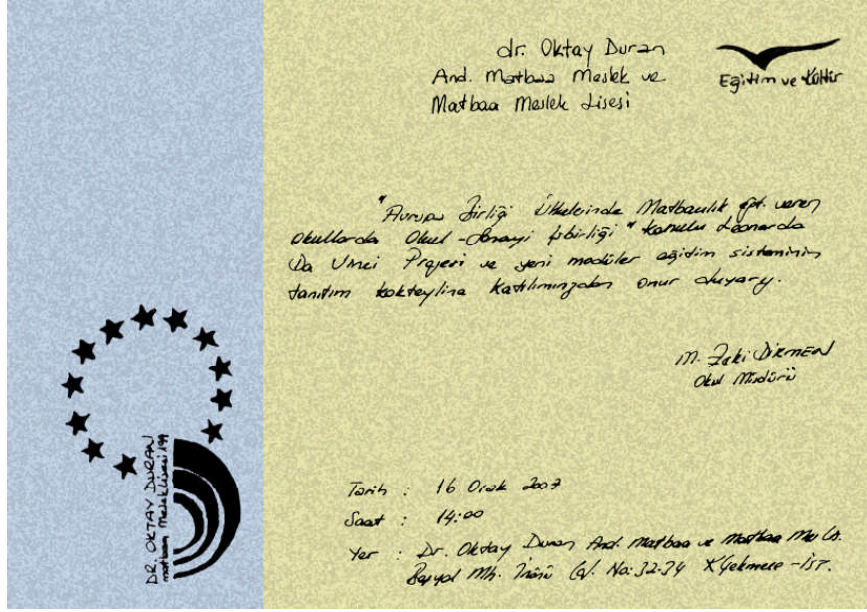 dr. Oktay Duran
And. Matbaa Meslek ve
Matbaa Meslek Lisesi
Eğitim ve Kültür
"Avrupa Birliği Ülkelerinde Matbaacılık eğt. veren
okullarda Okul-Sanayi İşbirliği" konulu Leonardo
Da Vinci Projesi ve yeni modüler eğitim sisteminin
tanıtım kokteyline katılımınızdan onur duyarız.
M. Zeki DİKMEN
Okul Müdürü
Tarih : 16 Ocak 2007
Saat : 14:00
Yer : Dr. Oktay Duran And. Matbaa ve Matbaa Mes Ls.
Beşyol Mh. İnönü Cd. No: 32-34 K.Çekmece - İST.
DR. OKTAY DURAN
matbaa meslek lisesi